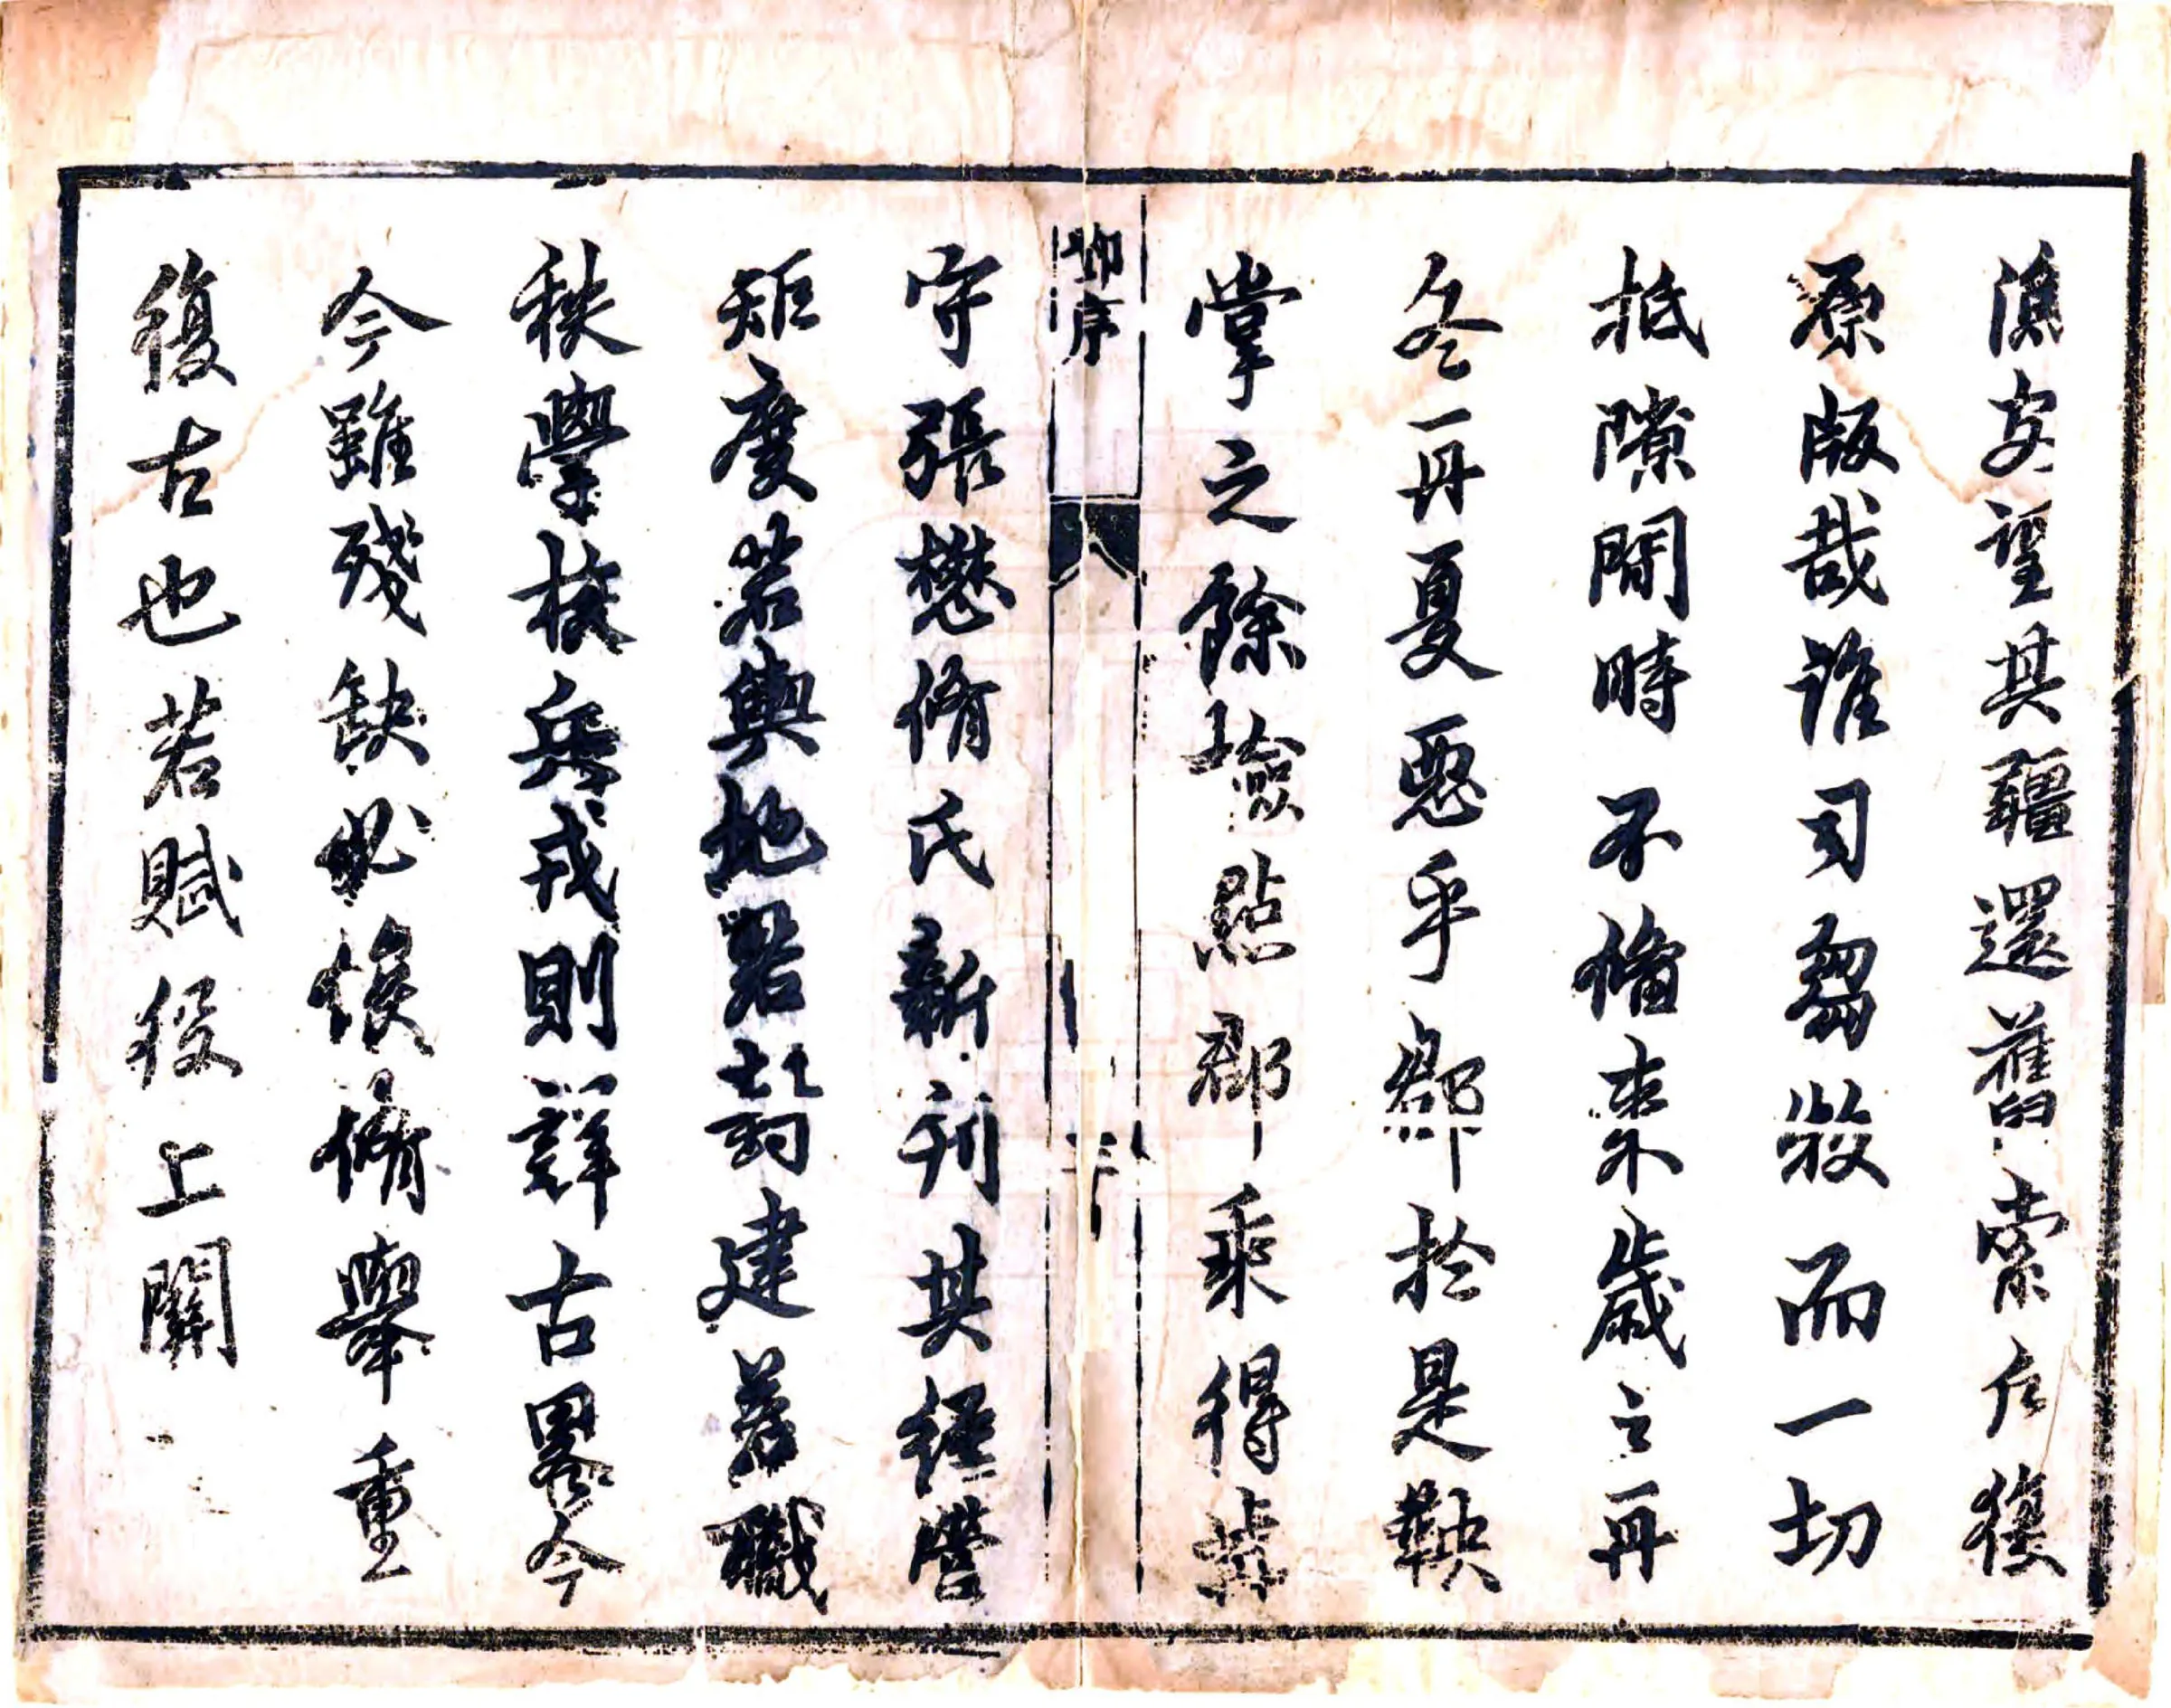 漁安望其疆還舊索户復
原版哉誰司芻牧而一切
抵隙閒時不偹來歲之再
冬一再夏惡乎鄉於是鞅
掌之餘撿點郡乘得
序
守張懋脩氏新刊其經營
矩度若輿地若封建若職
秩學校兵戎則詳古畧今
今雖殘缺必俟脩舉重
復古也若賦役上關